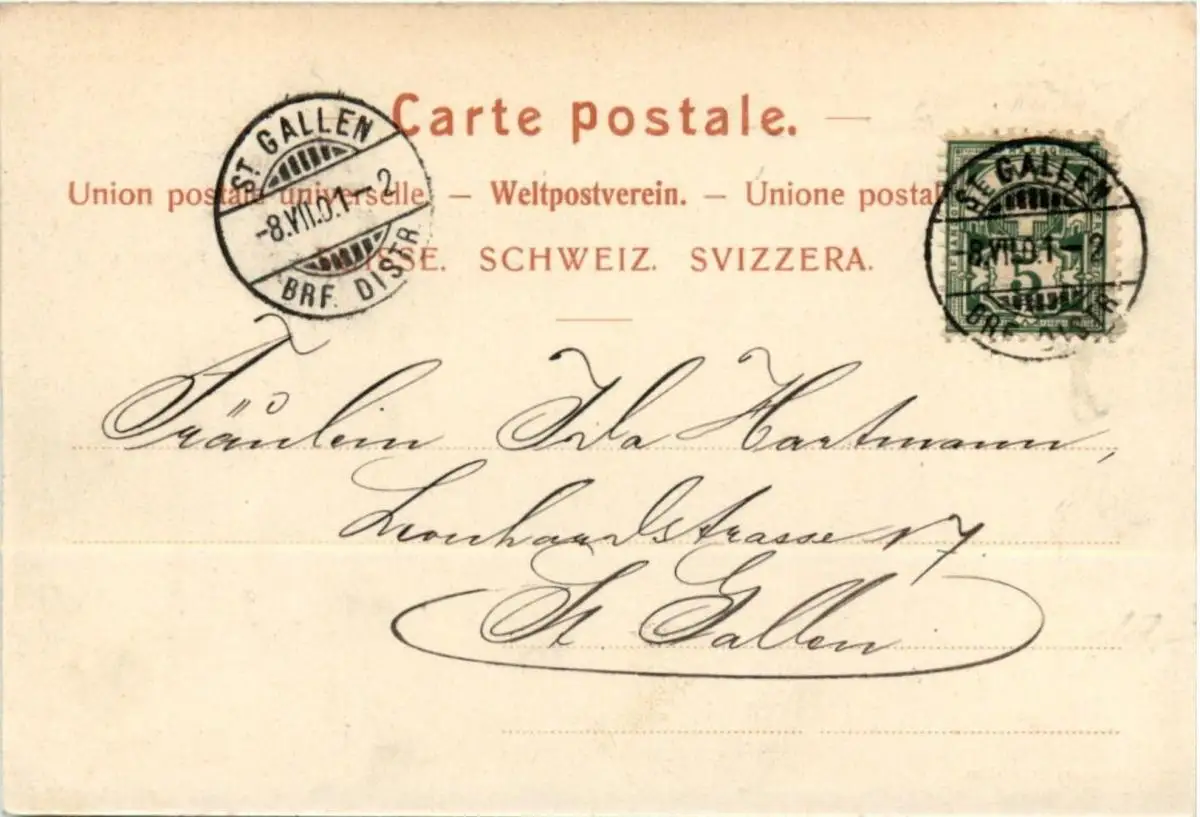 Carte postale. —
Union postale universelle. — Weltpostverein. — Unione postal
SSE. SCHWEIZ. SVIZZERA.
ST. GALLEN
-8.VII.01-2
BRF. DISTR.
STE GALLEN
-8.VII.01-2
BRF. DISTR.
FRANCO
5
Fräulein Ida Hartmann,
Leonhardstrasse 17.
St. Gallen